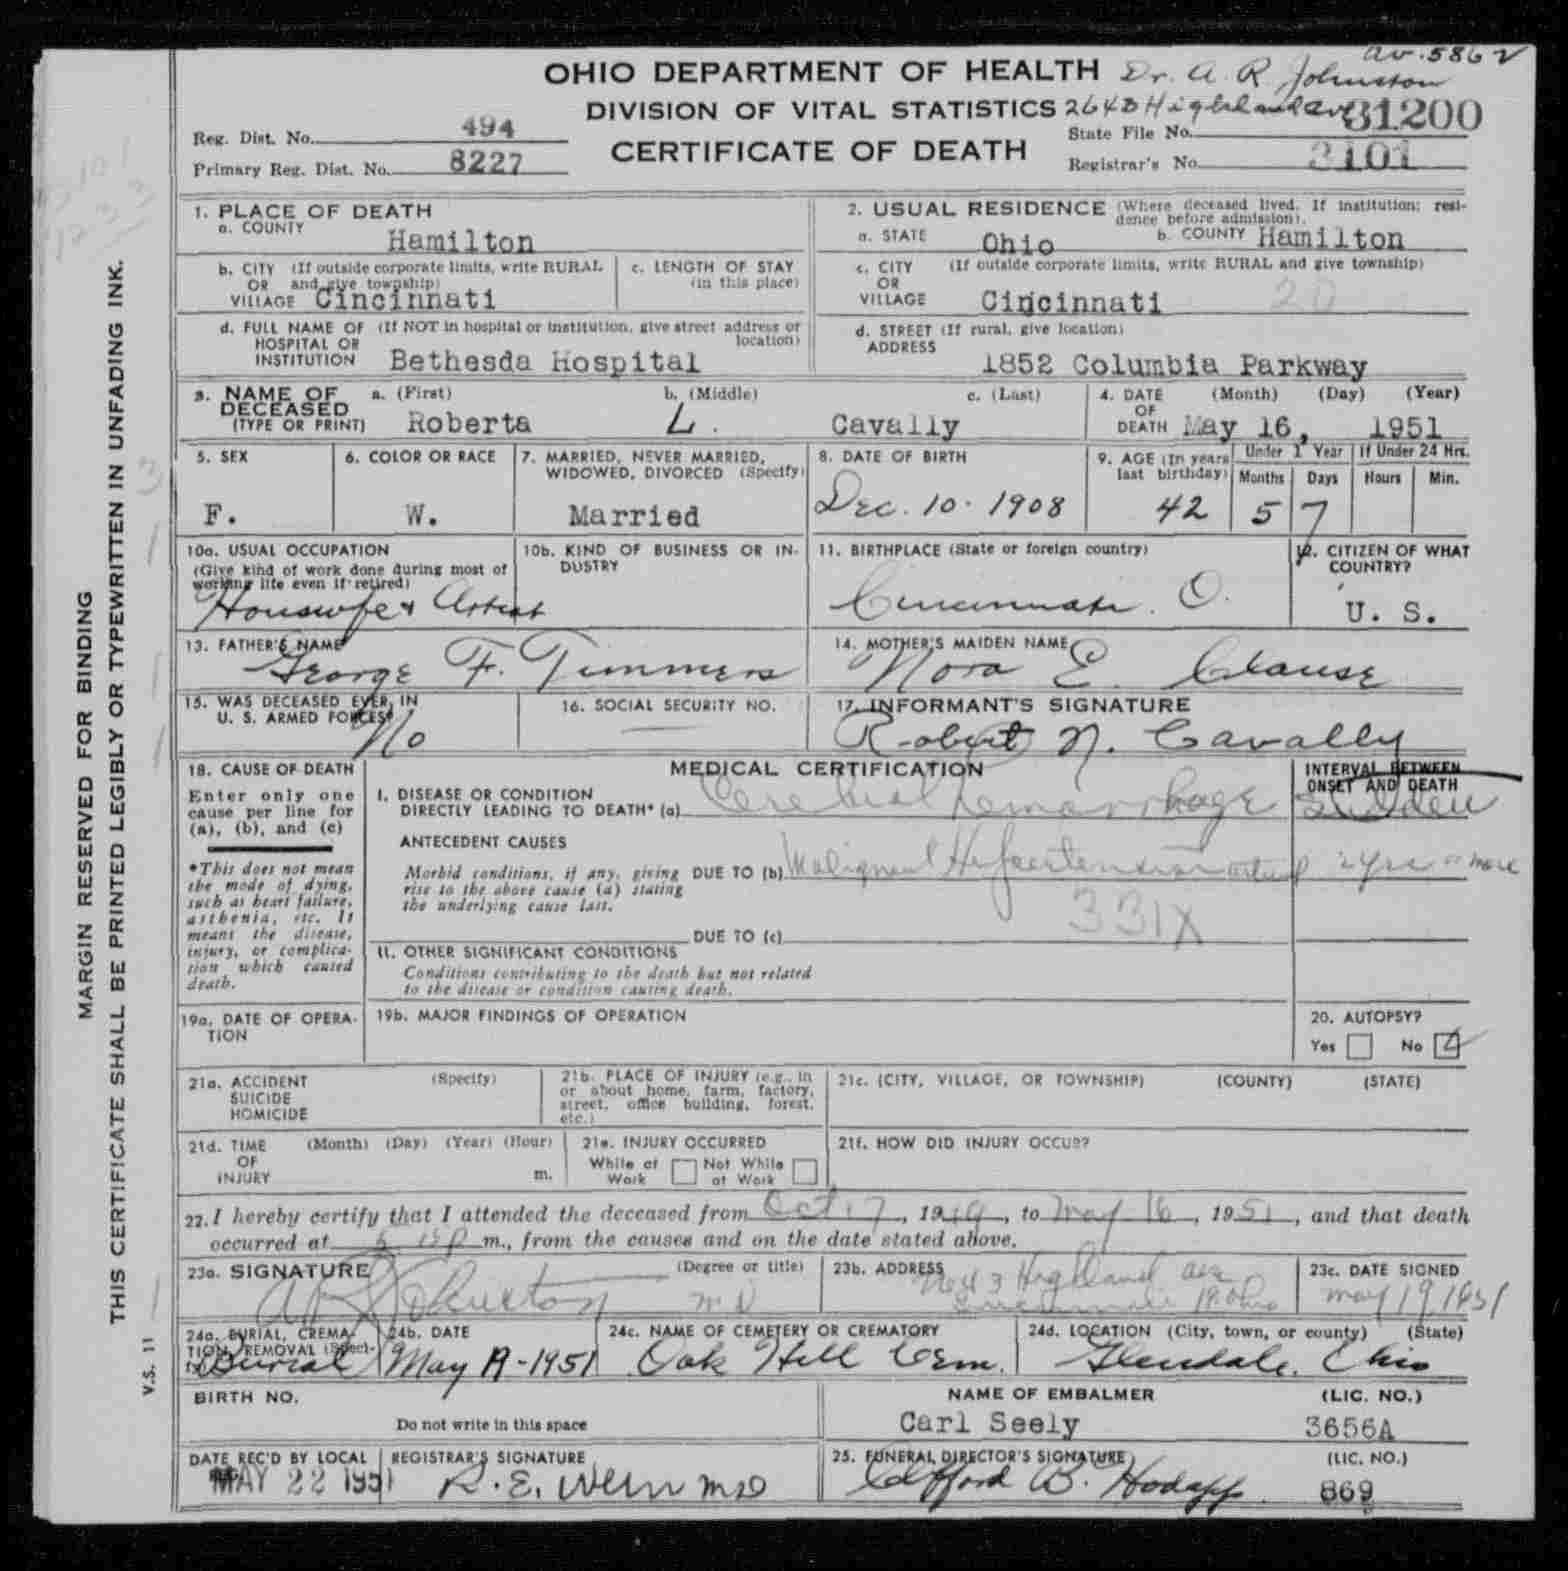 av. 5862
OHIO DEPARTMENT OF HEALTH Dr. A. R. Johnston
DIVISION OF VITAL STATISTICS 2643 Highland Av 31200
Reg. Dist. No. 494 State File No.
Primary Reg. Dist. No. 8227 CERTIFICATE OF DEATH Registrar's No. 3101
1. PLACE OF DEATH
a. COUNTY Hamilton
2. USUAL RESIDENCE (Where deceased lived. If institution: residence before admission).
a. STATE Ohio b. COUNTY Hamilton
b. CITY (If outside corporate limits, write RURAL
OR and give township)
VILLAGE Cincinnati
c. LENGTH OF STAY
(in this place)
c. CITY (If outside corporate limits, write RURAL and give township)
OR
VILLAGE Cincinnati 20
d. FULL NAME OF (If NOT in hospital or institution, give street address or
HOSPITAL OR location)
INSTITUTION Bethesda Hospital
d. STREET (If rural, give location)
ADDRESS
1852 Columbia Parkway
3. NAME OF a. (First) b. (Middle) c. (Last)
DECEASED
(TYPE OR PRINT) Roberta L. Cavally
4. DATE (Month) (Day) (Year)
OF
DEATH May 16, 1951
5. SEX
F.
6. COLOR OR RACE
W.
7. MARRIED, NEVER MARRIED,
WIDOWED, DIVORCED (Specify)
Married
8. DATE OF BIRTH
Dec. 10. 1908
9. AGE (In years
last birthday)
42
Under 1 Year If Under 24 Hrs.
Months Days Hours Min.
5 7
10a. USUAL OCCUPATION
(Give kind of work done during most of
working life even if retired)
Houswife & Artist
10b. KIND OF BUSINESS OR IN-
DUSTRY
11. BIRTHPLACE (State or foreign country)
Cincinnati. O.
12. CITIZEN OF WHAT
COUNTRY?
U. S.
13. FATHER'S NAME
George F. Timmers
14. MOTHER'S MAIDEN NAME
Nora E. Clause
15. WAS DECEASED EVER IN
U. S. ARMED FORCES?
No
16. SOCIAL SECURITY NO.
17. INFORMANT'S SIGNATURE
Robert N. Cavally
18. CAUSE OF DEATH
Enter only one
cause per line for
(a), (b), and (c)
*This does not mean
the mode of dying,
such as heart failure,
asthenia, etc. It
means the disease,
injury, or complica-
tion which caused
death.
MEDICAL CERTIFICATION
I. DISEASE OR CONDITION
DIRECTLY LEADING TO DEATH* (a) Cerebral Hemorrhage
ANTECEDENT CAUSES
Morbid conditions, if any, giving DUE TO (b) Malignant Hypertension
rise to the above cause (a) stating
the underlying cause last.
331X
DUE TO (c)
II. OTHER SIGNIFICANT CONDITIONS
Conditions contributing to the death but not related
to the disease or condition causing death.
INTERVAL BETWEEN
ONSET AND DEATH
Sudden
2 yrs or more
19a. DATE OF OPERA-
TION
19b. MAJOR FINDINGS OF OPERATION
20. AUTOPSY?
Yes No
21a. ACCIDENT (Specify)
SUICIDE
HOMICIDE
21b. PLACE OF INJURY (e.g., in
or about home, farm, factory,
street, office building, forest,
etc.)
21c. (CITY, VILLAGE, OR TOWNSHIP) (COUNTY) (STATE)
21d. TIME (Month) (Day) (Year) (Hour)
OF
INJURY m.
21e. INJURY OCCURRED
While at Not While
Work at Work
21f. HOW DID INJURY OCCUR?
22. I hereby certify that I attended the deceased from Oct 17, 1949, to May 16, 1951, and that death
occurred at m., from the causes and on the date stated above.
23a. SIGNATURE (Degree or title)
A R Johnston M D
23b. ADDRESS
2643 Highland Ave
Cincinnati 19 Ohio
23c. DATE SIGNED
May 19 1951
24a. BURIAL, CREMA-
TION, REMOVAL (Speci-
Burial
24b. DATE
May 19-1951
24c. NAME OF CEMETERY OR CREMATORY
Oak Hill Cem.
24d. LOCATION (City, town, or county) (State)
Glendale, Ohio
BIRTH NO.
Do not write in this space
NAME OF EMBALMER (LIC. NO.)
Carl Seely 3656A
DATE REC'D BY LOCAL
MAY 22 1951
REGISTRAR'S SIGNATURE
R. E. Wehr MD
25. FUNERAL DIRECTOR'S SIGNATURE (LIC. NO.)
Clifford B. Hodapp 869
MARGIN RESERVED FOR BINDING
THIS CERTIFICATE SHALL BE PRINTED LEGIBLY OR TYPEWRITTEN IN UNFADING INK.
V.S. 11